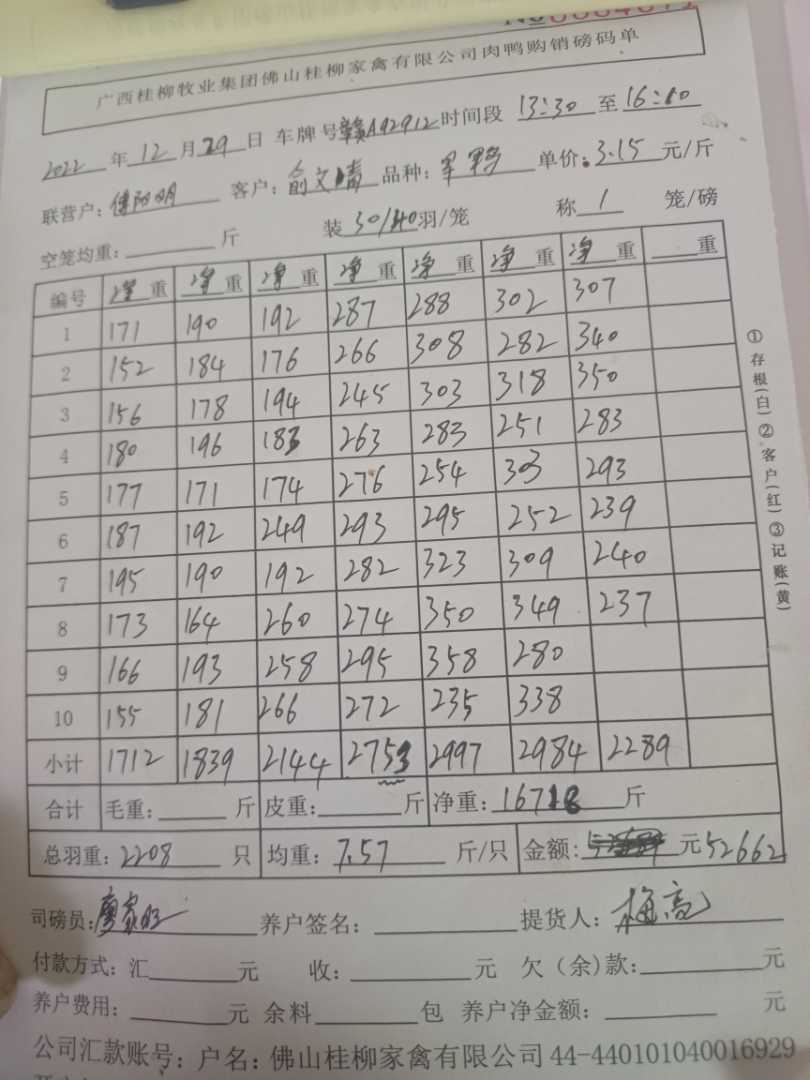 广西桂柳牧业集团佛山桂柳家禽有限公司肉鸭购销磅码单
2022年12月29日 车牌号赣A92912时间段 13:30至16:10
联营户: 客户:俞文晴 品种: 单价:3.15元/斤
空笼均重: 斤 装30/40羽/笼 称1笼/磅
编号 净重 净重 净重 净重 净重 净重 净重 重
1 171 190 192 287 288 302 307
2 152 184 176 266 308 282 340
3 156 178 194 245 303 318 350
4 180 196 183 263 283 251 283
5 177 171 174 276 254 303 293
6 187 192 249 293 295 252 239
7 195 190 192 282 323 309 240
8 173 164 260 274 350 349 237
9 166 193 258 295 358 280
10 155 181 266 272 235 338
小计 1712 1839 2144 2753 2997 2984 2289
合计 毛重: 斤 皮重: 斤 净重:16718斤
总羽重:2208只 均重:7.57斤/只 金额: 元52662
司磅员: 养户签名: 提货人:梅高
付款方式:汇 元 收: 元 欠(余)款: 元
养户费用: 元 余料 包 养户净金额: 元
公司汇款账号:户名:佛山桂柳家禽有限公司44-440101040016929
①存根(白)②客户(红)③记账(黄)